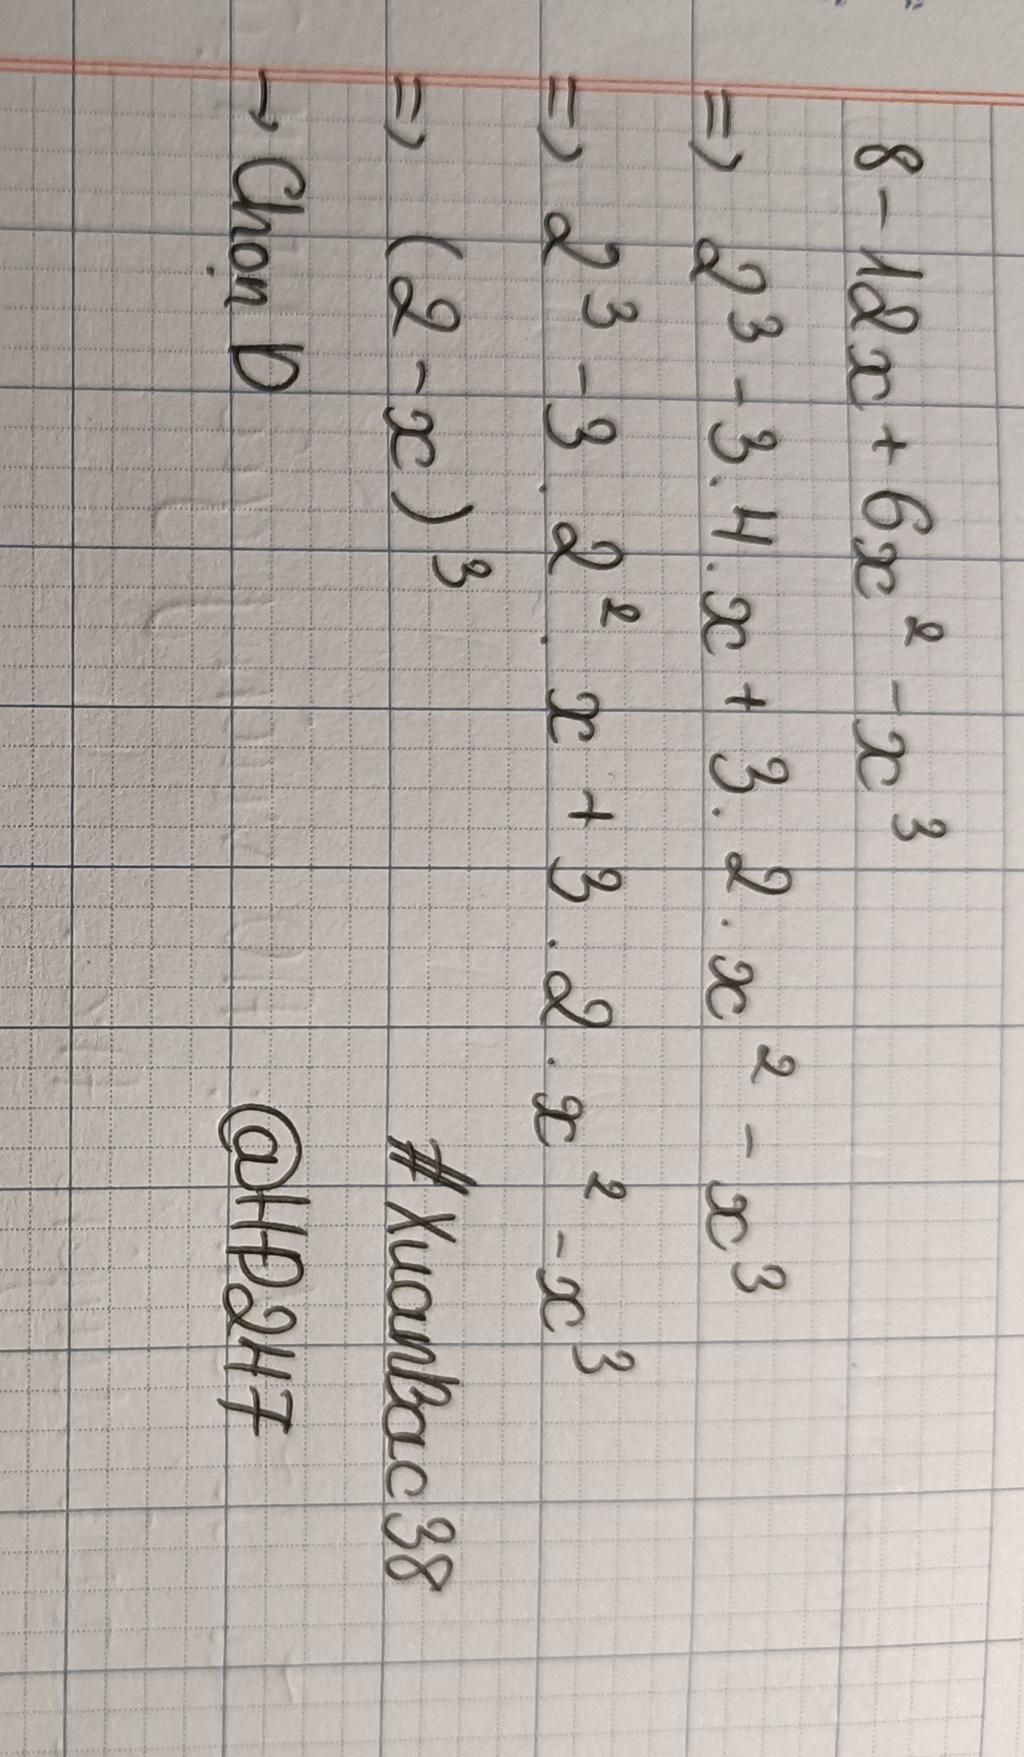 8 - 12x + 6x² - x³
=> 2³ - 3.4.x + 3.2.x² - x³
=> 2³ - 3.2².x + 3.2.x² - x³
=> (2 - x)³
#XuanBac38
→ Chọn D
@HĐ2H7